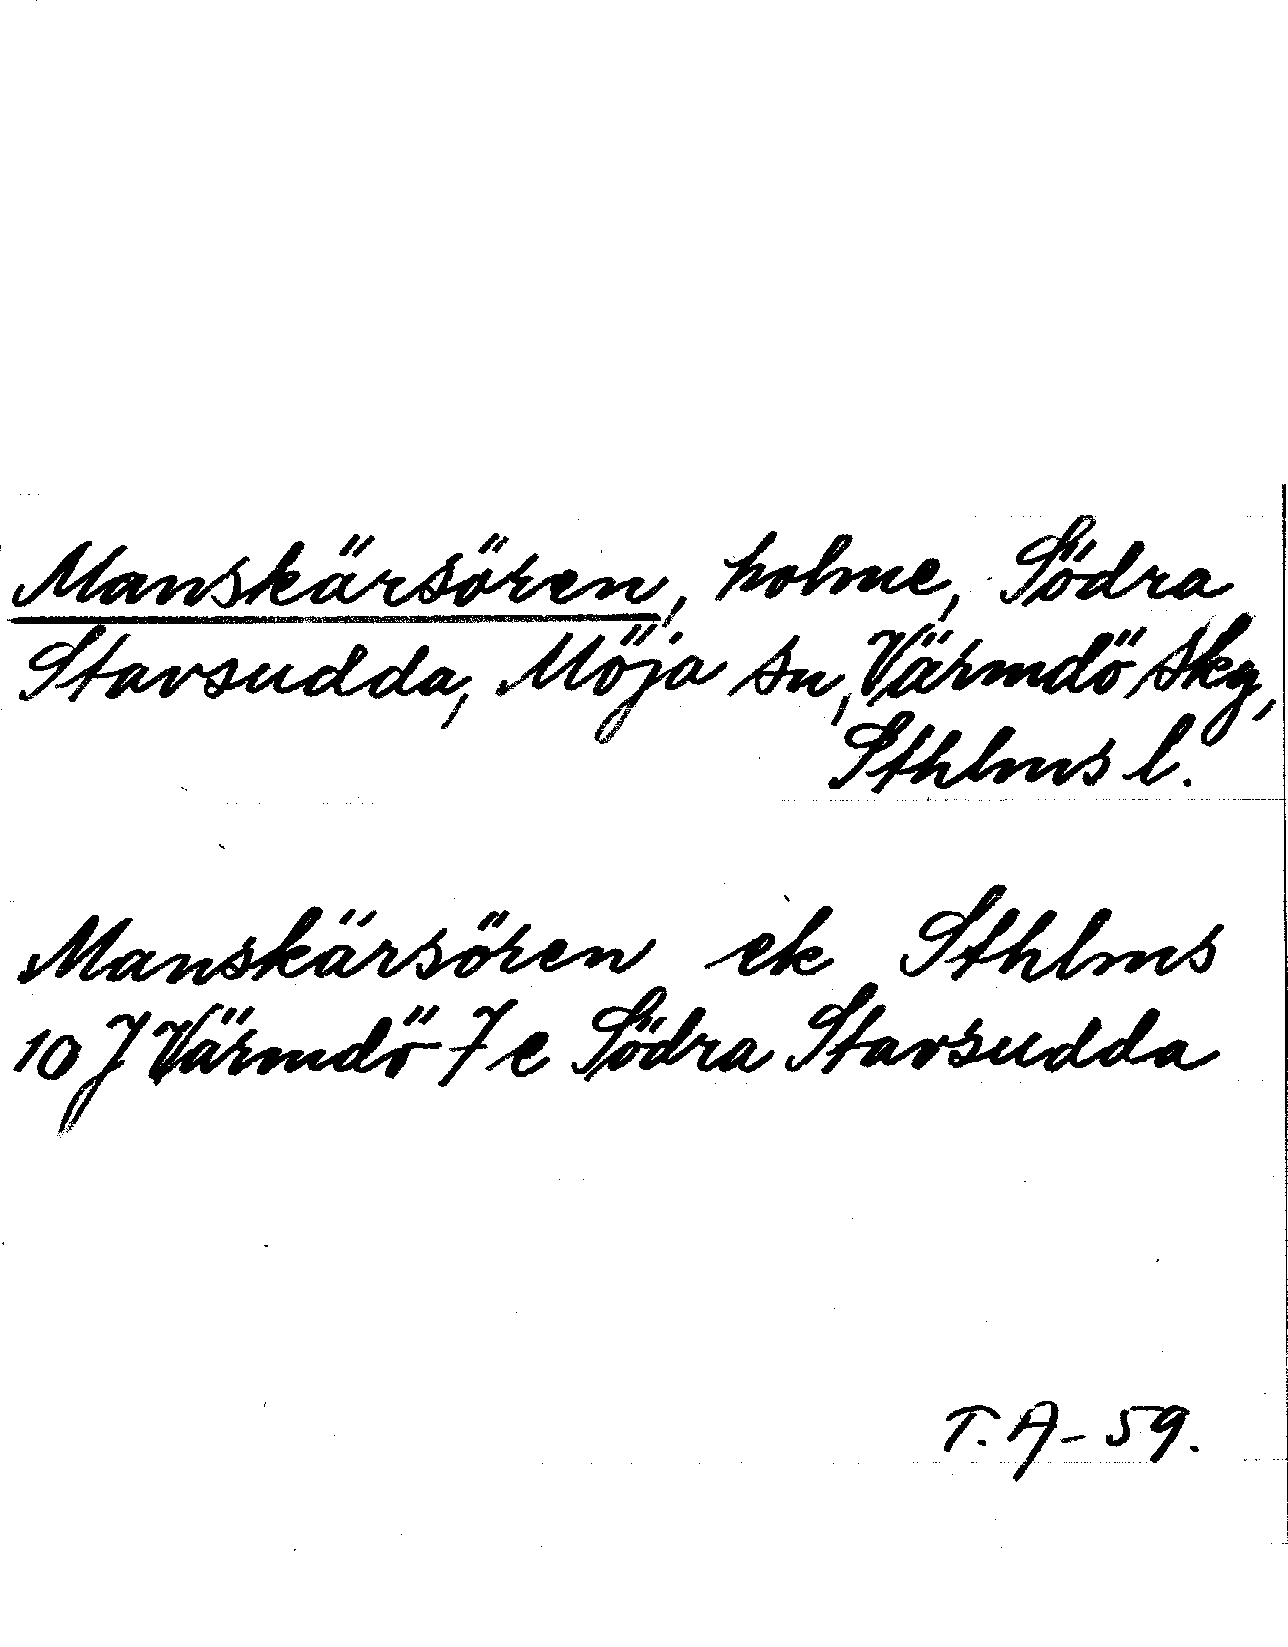 Manskärsören, holme, Södra
Stavsudda, Möja sn, Värmdö skg,
Sthlms l.
Manskärsören ek Sthlms
10 J Värmdö 7 e Södra Stavsudda
T. A - 59.